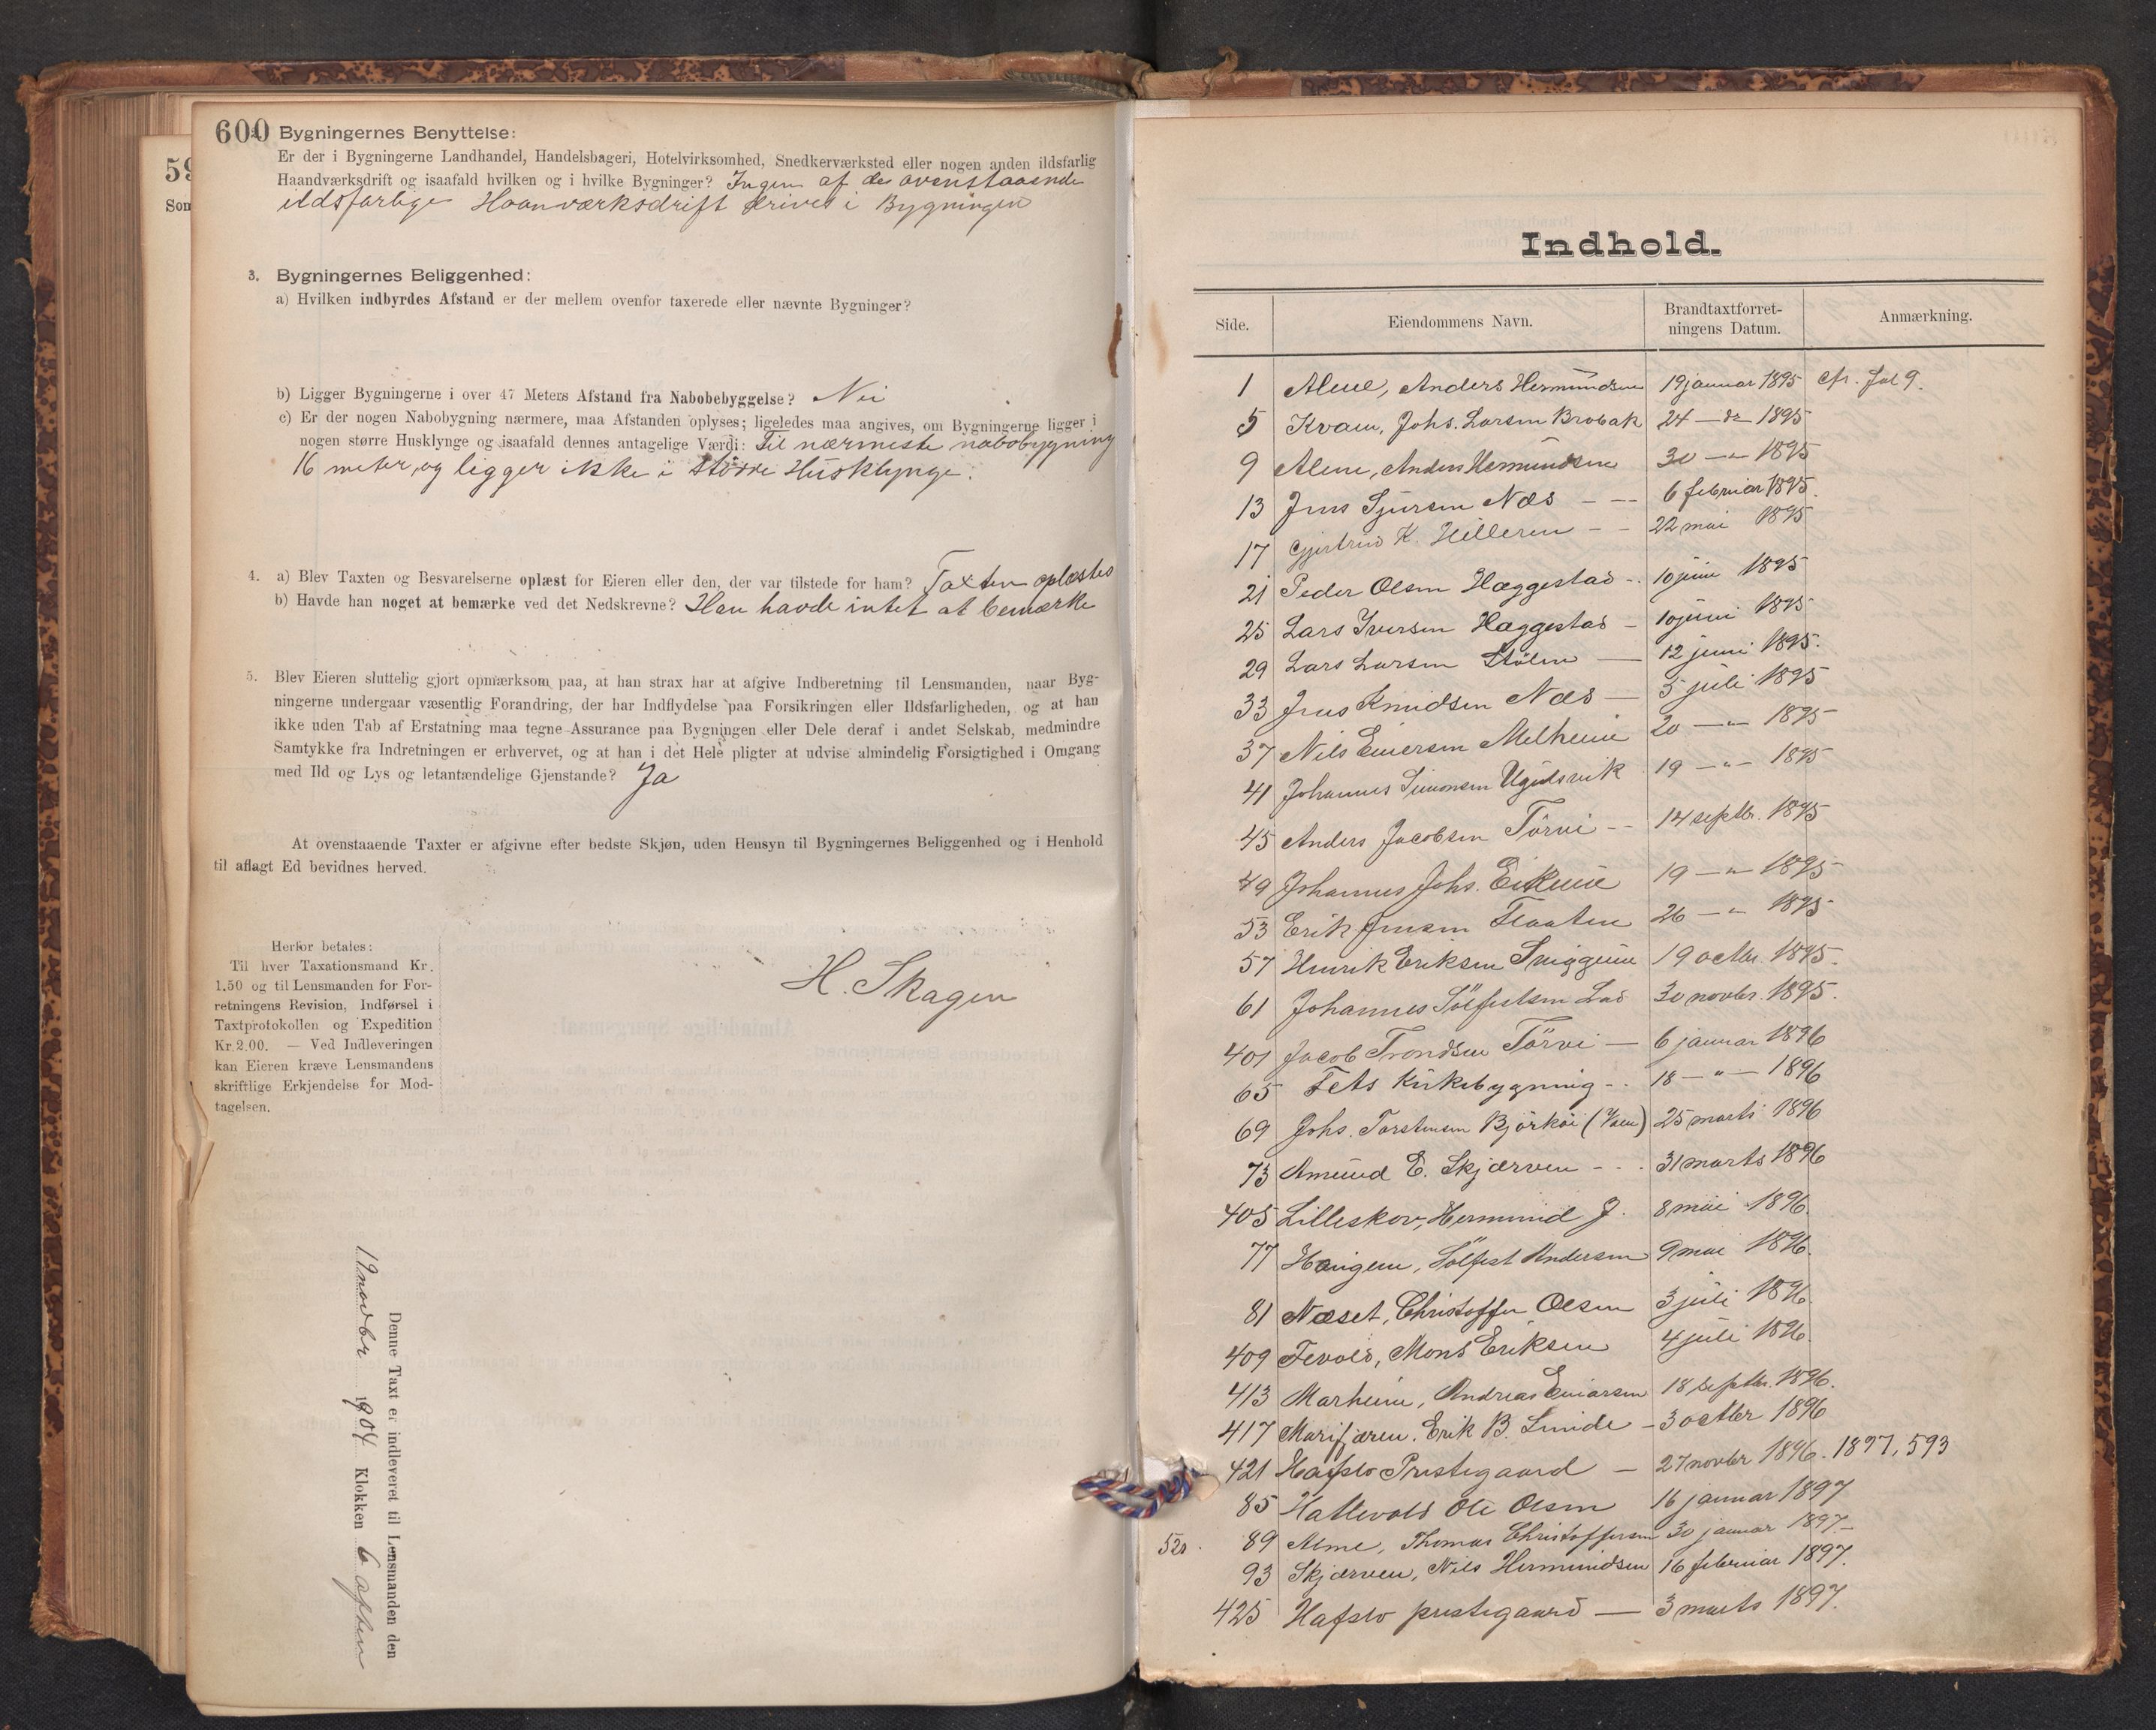 600
59
Som
2. Bygningernes Benyttelse:
Er der i Bygningerne Landhandel, Handelsbageri, Hotelvirksomhed, Snedkerværksted eller nogen anden ildsfarlig
Haandværksdrift og isaafald hvilken og i hvilke Bygninger? Ingen af de ovenstaaende
ildsfarlige Haanværksdrift drives i Bygningen
3. Bygningernes Beliggenhed:
a) Hvilken indbyrdes Afstand er der mellem ovenfor taxerede eller nævnte Bygninger?
b) Ligger Bygningerne i over 47 Meters Afstand fra Nabobebyggelse? Nei
c) Er der nogen Nabobygning nærmere, maa Afstanden oplyses; ligeledes maa angives, om Bygningerne ligger i
nogen større Husklynge og isaafald dennes antagelige Værdi: Til nærmeste nabobygning
16 meter, og ligger ikke i større Husklynge.
4. a) Blev Taxten og Besvarelserne oplæst for Eieren eller den, der var tilstede for ham? Taxten oplæstes
b) Havde han noget at bemærke ved det Nedskrevne? Han havde intet at bemærke
5. Blev Eieren sluttelig gjort opmærksom paa, at han strax har at afgive Indberetning til Lensmanden, naar Byg-
ningerne undergaar væsentlig Forandring, der har Indflydelse paa Forsikringen eller Ildsfarligheden, og at han
ikke uden Tab af Erstatning maa tegne Assurance paa Bygningen eller Dele deraf i andet Selskab, medmindre
Samtykke fra Indretningen er erhvervet, og at han i det Hele pligter at udvise almindelig Forsigtighed i Omgang
med Ild og Lys og letantændelige Gjenstande? Ja
At ovenstaaende Taxter er afgivne efter bedste Skjøn, uden Hensyn til Bygningernes Beliggenhed og i Henhold
til aflagt Ed bevidnes herved.
H. Skagen
Herfor betales:
Til hver Taxationsmand Kr.
1.50 og til Lensmanden for For-
retningens Revision, Indførsel i
Taxtprotokollen og Expedition
Kr. 2.00. — Ved Indleveringen
kan Eieren kræve Lensmandens
skriftlige Erkjendelse for Mod-
tagelsen.
Denne Taxt er indleveret til Lensmanden den
19 novbr 1904 Klokken 6 aften
Indhold.
Side. Eiendommens Navn. Brandtaxtforret-
ningens Datum. Anmærkning.
1 Alme, Anders Hermundsen 19 januar 1895 cfr. fol 9.
5 Kvam, Johs. Larsen Brobak 24 — do — 1895
9 Alme, Anders Hermundsen 30 — " — 1895
13 Jens Sjursen Næs — — 6 februar 1895.
17 Gjertrud K. Hilleren — — 22 mai 1895
21 Peder Olsen Hæggestad - . 10 juni 1895
25 Lars Iversen Hæggestad — 10 juni 1895
29 Lars Larsen Stölen — 12 juni 1895.
33 Jens Knudsen Næs — 5 juli 1895
37 Nils Einersen Melheim 20 — " — 1895
41 Johannes Simonsen Ugulsvik 19 — " — 1895
45 Anders Jacobsen Törvi - - 14 septbr. 1895
49 Johannes Johs. Eikum 19 — " — 1895
53 Erik Jensen Flaaten 26 — " 1895
57 Henrik Eriksen Sniggum 19 octbr. 1895.
61 Johannes Sölfestsen Lad 30 novbr. 1895.
401 Jacob Trondsen Törvi — 6 januar 1896
65 Fets Kirkebygning - . 18 — " — 1896
69 Johs. Torstensen Björkøi 25 marts 1896
73 Amund E. Skjærven - . . 31 marts 1896
405 Lilleskov, Hermund J. 8 mai 1896.
77 Haugen, Sölfest Andersen 9 mai 1896.
81 Næset, Christoffer Olsen 3 juli 1896.
409 Fevold, Mons Eriksen 4 juli 1896.
413 Marheim, Andreas Einarsen 18 septbr. 1896.
417 Marifjæren. Erik B. Smide — 3 octbr 1896
421 Hafslo Prestegaard — 27 novbr 1896. 1897, 593
85 Hattevold Ole Olsen 16 januar 1897
520. 89 Alme, Thomas Christoffersen 30 januar 1897 —
93 Skjærven, Nils Hermundsen 16 februar 1897.
425 Hafslo prestegaard — 3 marts 1897.